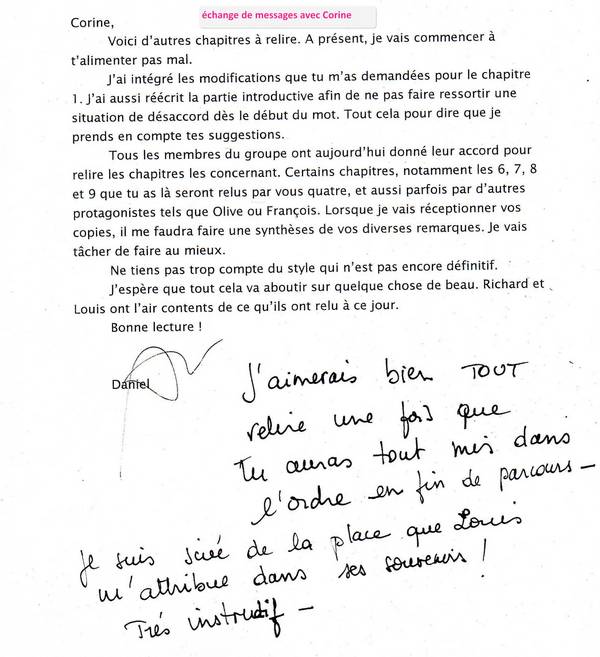 échange de messages avec Corine
Corine,
Voici d'autres chapitres à relire. A présent, je vais commencer à
t'alimenter pas mal.
J'ai intégré les modifications que tu m'as demandées pour le chapitre
1. J'ai aussi réécrit la partie introductive afin de ne pas faire ressortir une
situation de désaccord dès le début du mot. Tout cela pour dire que je
prends en compte tes suggestions.
Tous les membres du groupe ont aujourd'hui donné leur accord pour
relire les chapitres les concernant. Certains chapitres, notamment les 6, 7, 8
et 9 que tu as là seront relus par vous quatre, et aussi parfois par d'autres
protagonistes tels que Olive ou François. Lorsque je vais réceptionner vos
copies, il me faudra faire une synthèses de vos diverses remarques. Je vais
tâcher de faire au mieux.
Ne tiens pas trop compte du style qui n'est pas encore définitif.
J'espère que tout cela va aboutir sur quelque chose de beau. Richard et
Louis ont l'air contents de ce qu'ils ont relu à ce jour.
Bonne lecture !
Daniel
J'aimerais bien TOUT
relire une fois que
Tu auras tout mis dans
l'ordre en fin de parcours –
Je suis sciée de la place que Louis
m'attribue dans ses souvenirs !
Très instructif –